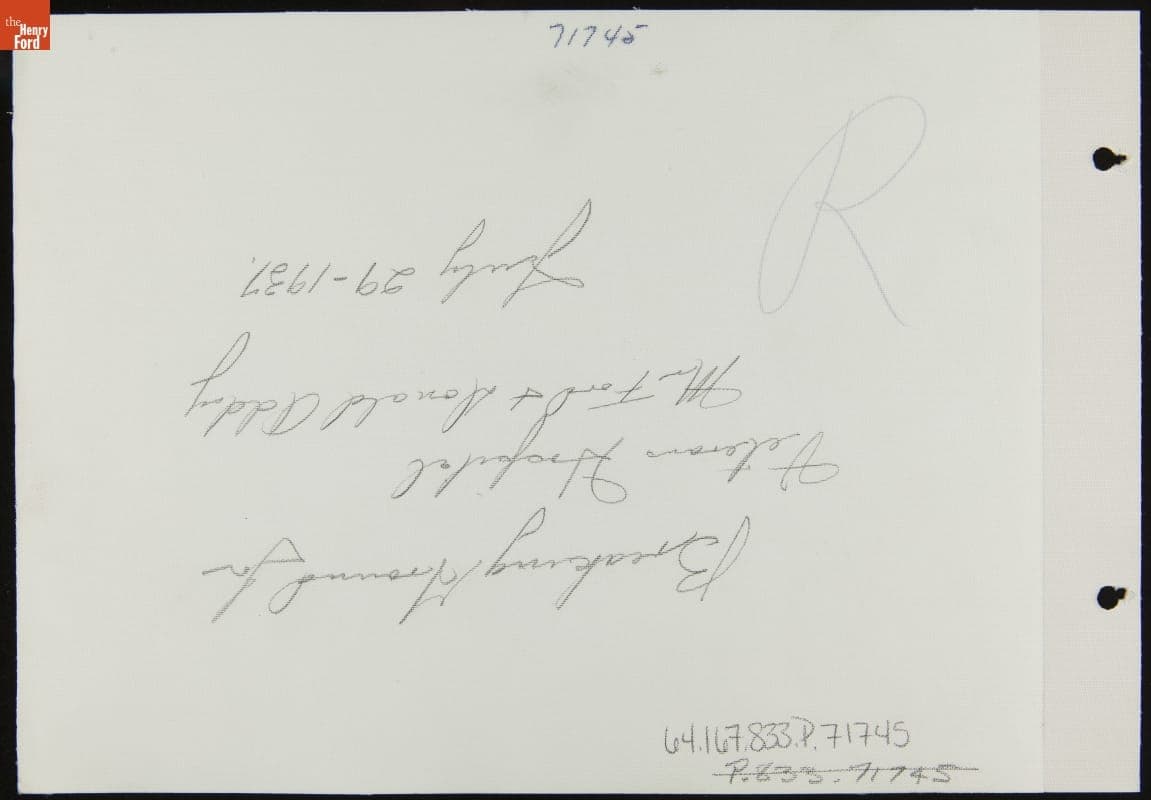 the
Henry
Ford
71745
R
Breaking Ground for
Veterans Hospital
Mr Ford & Donald Addy
July 29-1937.
64.167.833.P.71745
P.833.71745